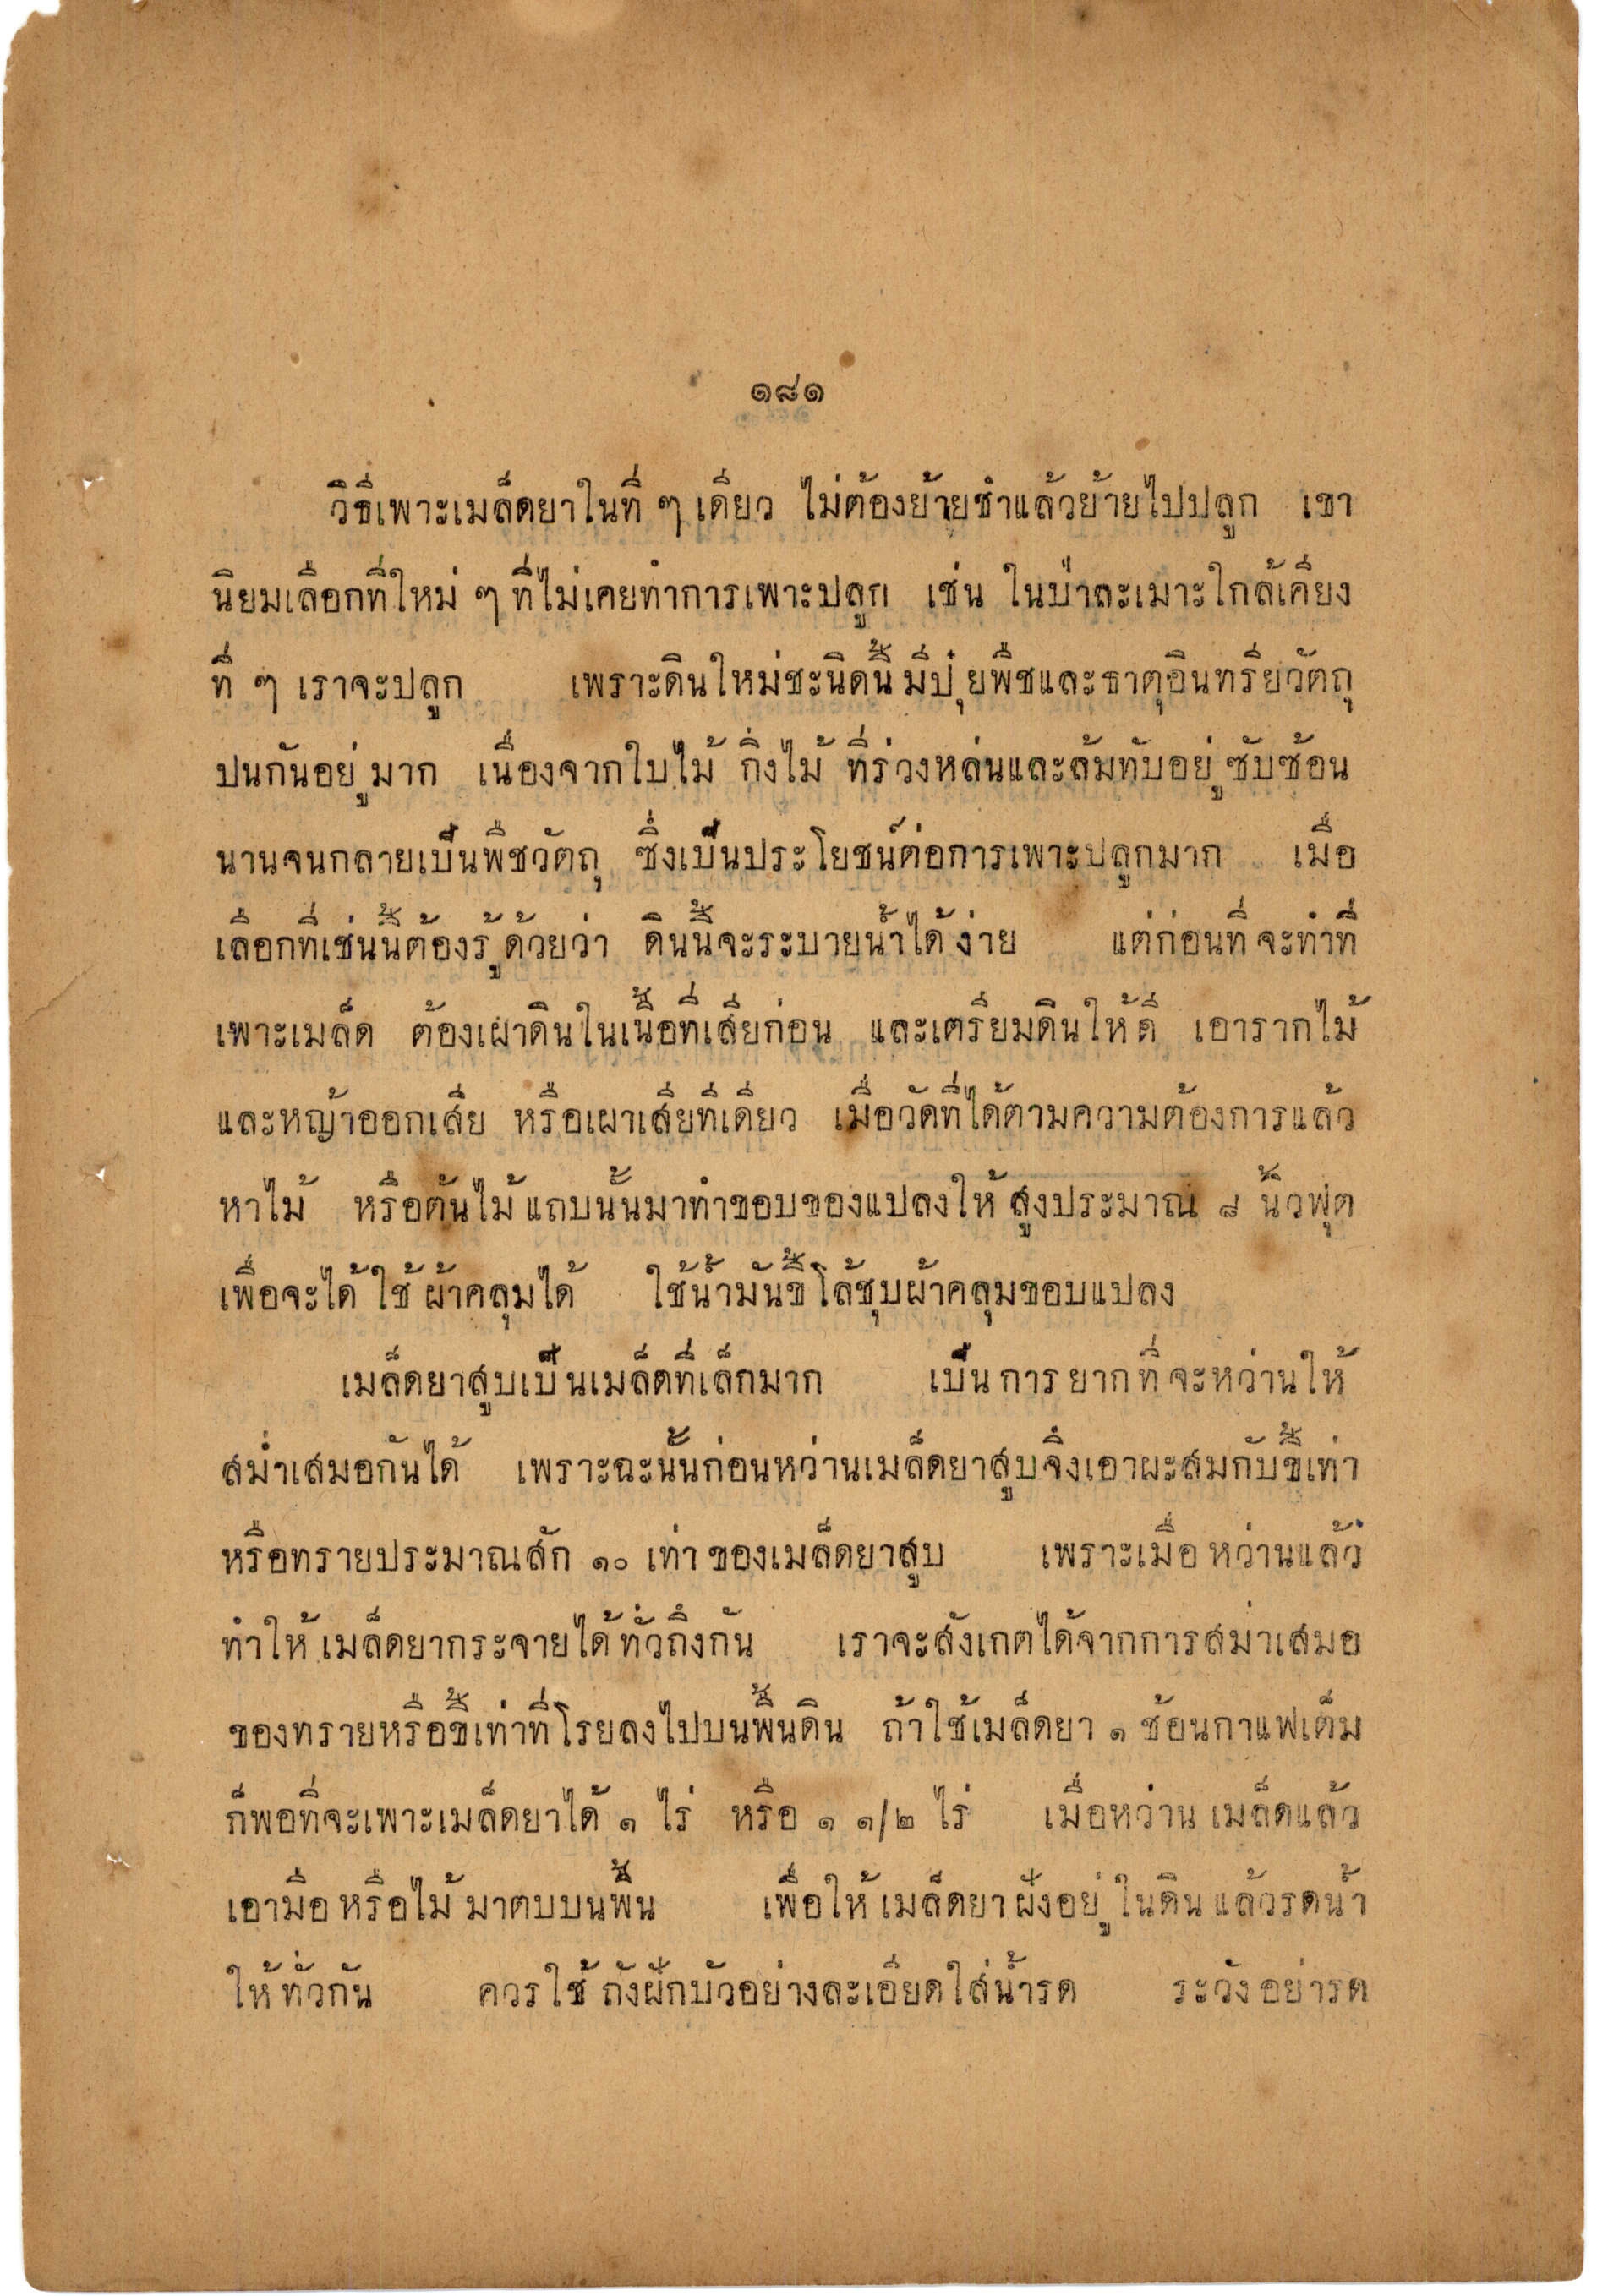 ๑๘๑
วิธีเพาะเมล็ดยาในที่ ๆ เดียว ไม่ต้องย้ายชำแล้วย้ายไปปลูก เขา
นิยมเลือกที่ใหม่ ๆ ที่ไม่เคยทำการเพาะปลูก เช่น ในป่าละเมาะใกล้เคียง
ที่ ๆ เราจะปลูก เพราะดินใหม่ชะนิดนี้มีปุ๋ยพืชและธาตุอินทรียวัตถุ
ปนกันอยู่มาก เนื่องจากใบไม้ กิ่งไม้ ที่ร่วงหล่นและล้มทับอยู่ซับซ้อน
นานจนกลายเป็นพืชวัตถุ ซึ่งเป็นประโยชน์ต่อการเพาะปลูกมาก เมื่อ
เลือกที่เช่นนี้ต้องรู้ด้วยว่า ดินนี้จะระบายน้ำได้ง่าย แต่ก่อนที่จะทำที่
เพาะเมล็ด ต้องเผาดินในเนื้อที่เสียก่อน และเตรียมดินให้ดี เอารากไม้
และหญ้าออกเสีย หรือเผาเสียทีเดียว เมื่อวัดที่ได้ตามความต้องการแล้ว
หาไม้ หรือต้นไม้แถบนั้นมาทำขอบของแปลงให้สูงประมาณ ๘ นิ้วฟุต
เพื่อจะได้ใช้ผ้าคลุมได้ ใช้น้ำมันขี้โล้ชุบผ้าคลุมขอบแปลง
เมล็ดยาสูบเป็นเมล็ดที่เล็กมาก เป็นการยากที่จะหว่านให้
สม่ำเสมอกันได้ เพราะฉะนั้นก่อนหว่านเมล็ดยาสูบจึงเอาผะสมกับขี้เท่า
หรือทรายประมาณสัก ๑๐ เท่าของเมล็ดยาสูบ เพราะเมื่อหว่านแล้ว
ทำให้เมล็ดยากระจายได้ทั่วถึงกัน เราจะสังเกตได้จากการสม่ำเสมอ
ของทรายหรือขี้เท่าที่โรยลงไปบนพื้นดิน ถ้าใช้เมล็ดยา ๑ ช้อนกาแฟเต็ม
ก็พอที่จะเพาะเมล็ดยาได้ ๑ ไร่ หรือ ๑ ๑/๒ ไร่ เมื่อหว่านเมล็ดแล้ว
เอามือหรือไม้มาตบบนพื้น เพื่อให้เมล็ดยาฝังอยู่ในดินแล้วรดน้ำ
ให้ทั่วกัน ควรใช้ถังฝักบัวอย่างละเอียดใส่น้ำรด ระวังอย่ารด